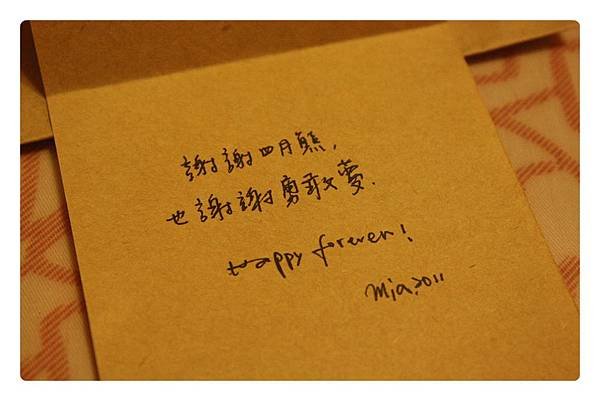 謝謝四月熊,
也謝謝勇敢夢.
Happy forever!
Mia.2011